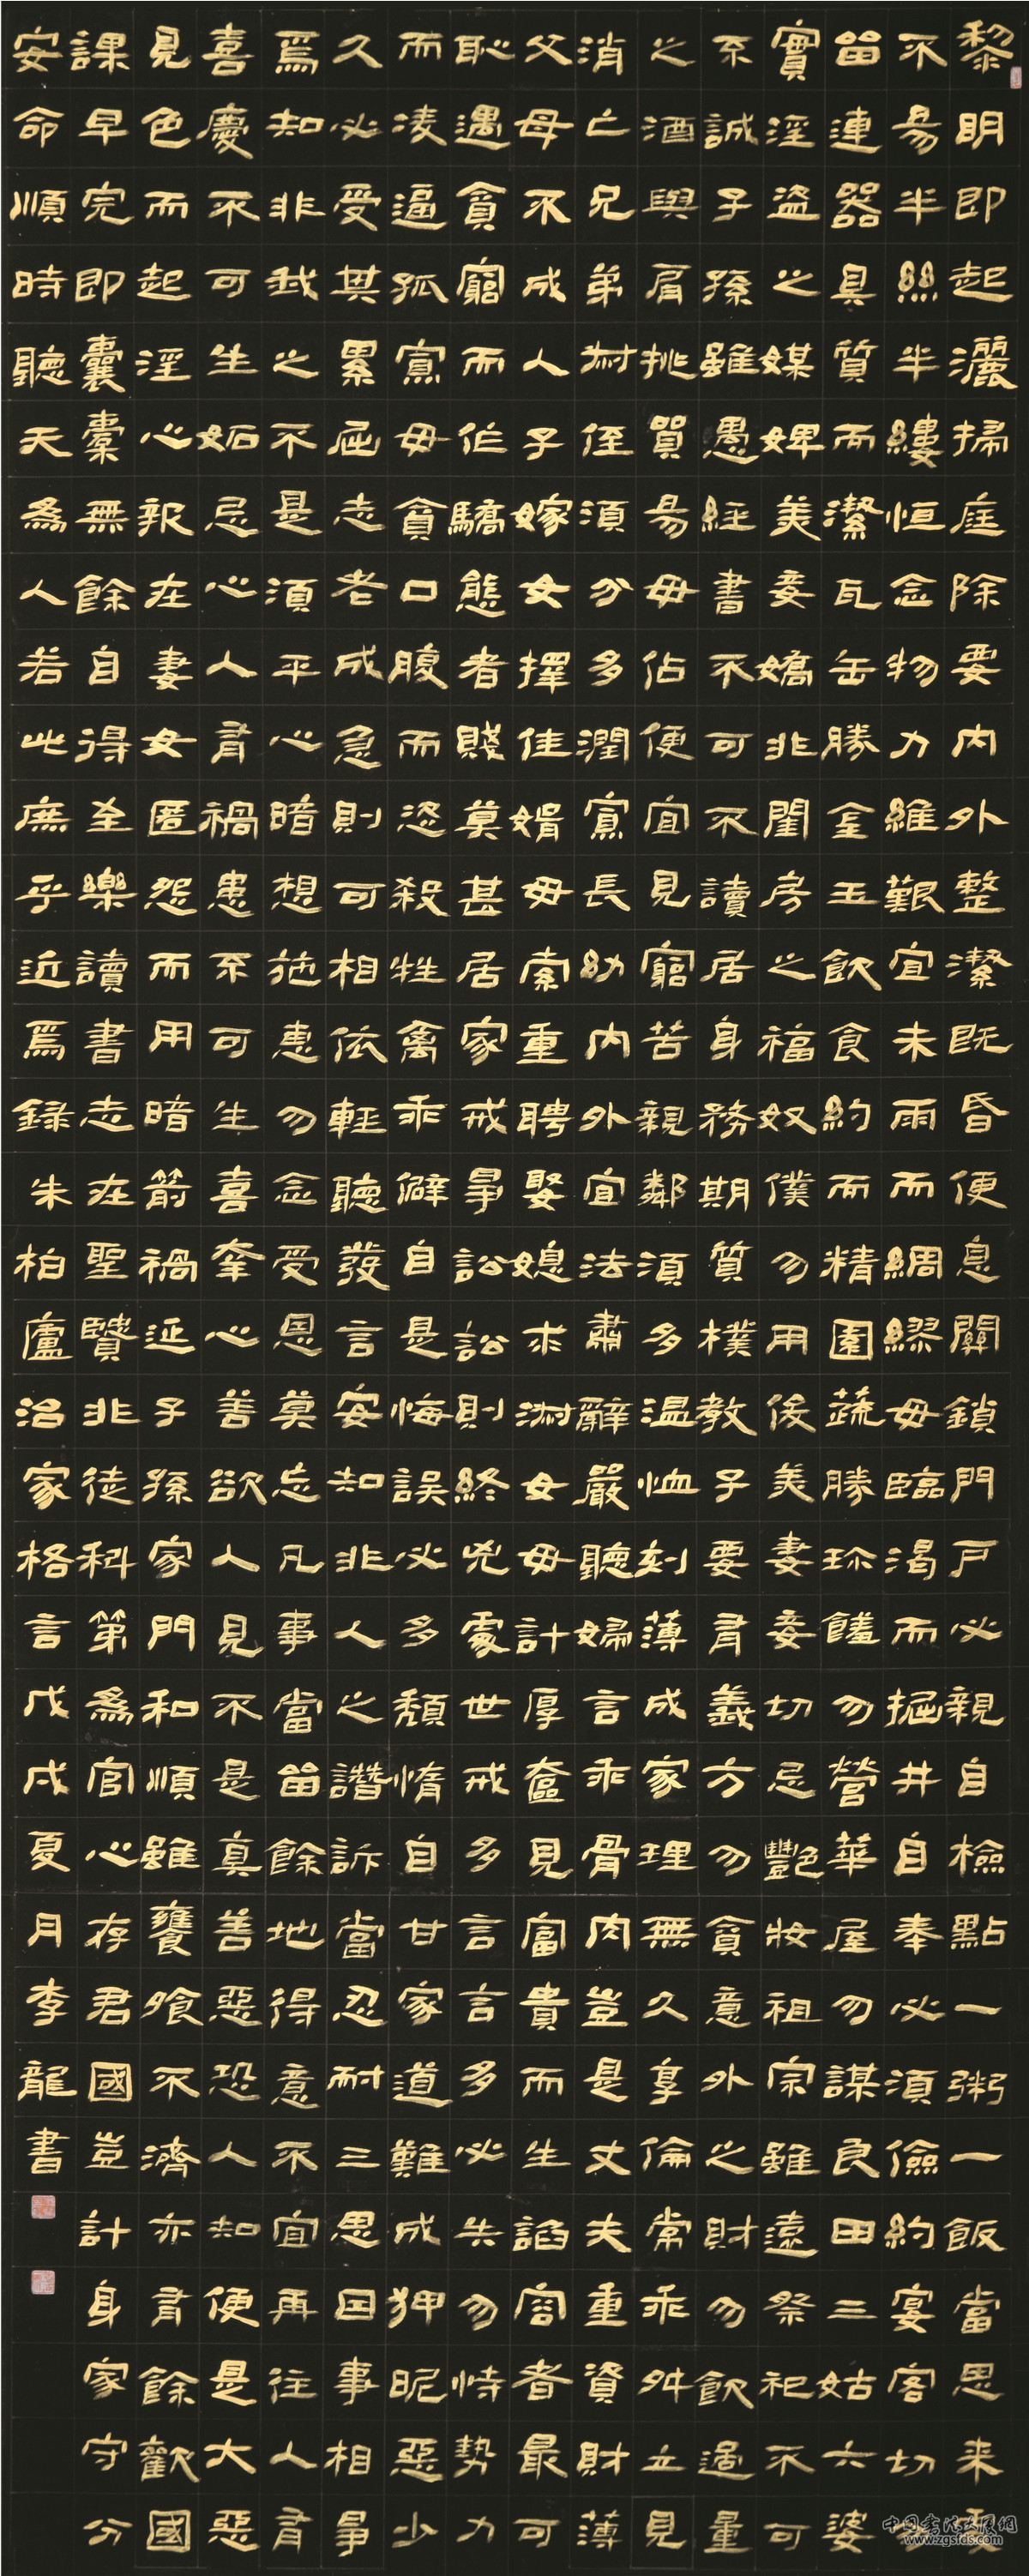 黎明即起灑掃庭除要内外整潔既昏便息關鎖門戶必親自檢點一粥一飯當思来
不易半絲半縷恒念物力維艱宜未雨而綢繆毋臨渴而掘井自奉必須儉約宴客切
留連器具質而潔瓦缶勝金玉飲食約而精園蔬勝珍饈勿營華屋勿謀良田三姑六婆
實淫盜之媒婢美妾嬌非閨房之福奴僕勿用俊美妻妾切忌艷妝祖宗雖遠祭祀不可
不誠子孫雖愚經書不可不讀居身務期質樸教子要有義方勿貪意外之財勿飲過量
之酒與肩挑貿易毋佔便宜見窮苦親鄰須多温恤刻薄成家理無久享倫常乖舛立見
消亡兄弟叔侄須分多潤寡長幼内外宜法肅辭嚴聽婦言乖骨肉豈是丈夫重資財薄
父母不成人子嫁女擇佳婿毋索重聘娶媳求淑女毋計厚奩見富貴而生諂容者最可
恥遇貧窮而作驕態者賤莫甚居家戒爭訟訟則終兇處世戒多言言多必失勿恃勢力
而凌逼孤寡毋貪口腹而恣殺牲禽乖僻自是悔誤必多頹惰自甘家道難成狎昵惡少
久必受其累屈志老成急則可相依輕聽發言安知非人之譖訴當忍耐三思因事相爭
焉知非我之不是須平心暗想施惠勿念受恩莫忘凡事當留餘地得意不宜再往人有
喜慶不可生妬忌心人有禍患不可生喜幸心善欲人見不是真善惡恐人知便是大惡
見色而起淫心報在妻女匿怨而用暗箭禍延子孫家門和順雖饔飧不濟亦有餘歡國
課早完即囊橐無餘自得至樂讀書志在聖賢非徒科第為官心存君國豈計身家守分
安命順時聽天為人若此庶乎近焉錄朱柏廬治家格言戊戌夏月李龍書
www.zgsfds.com